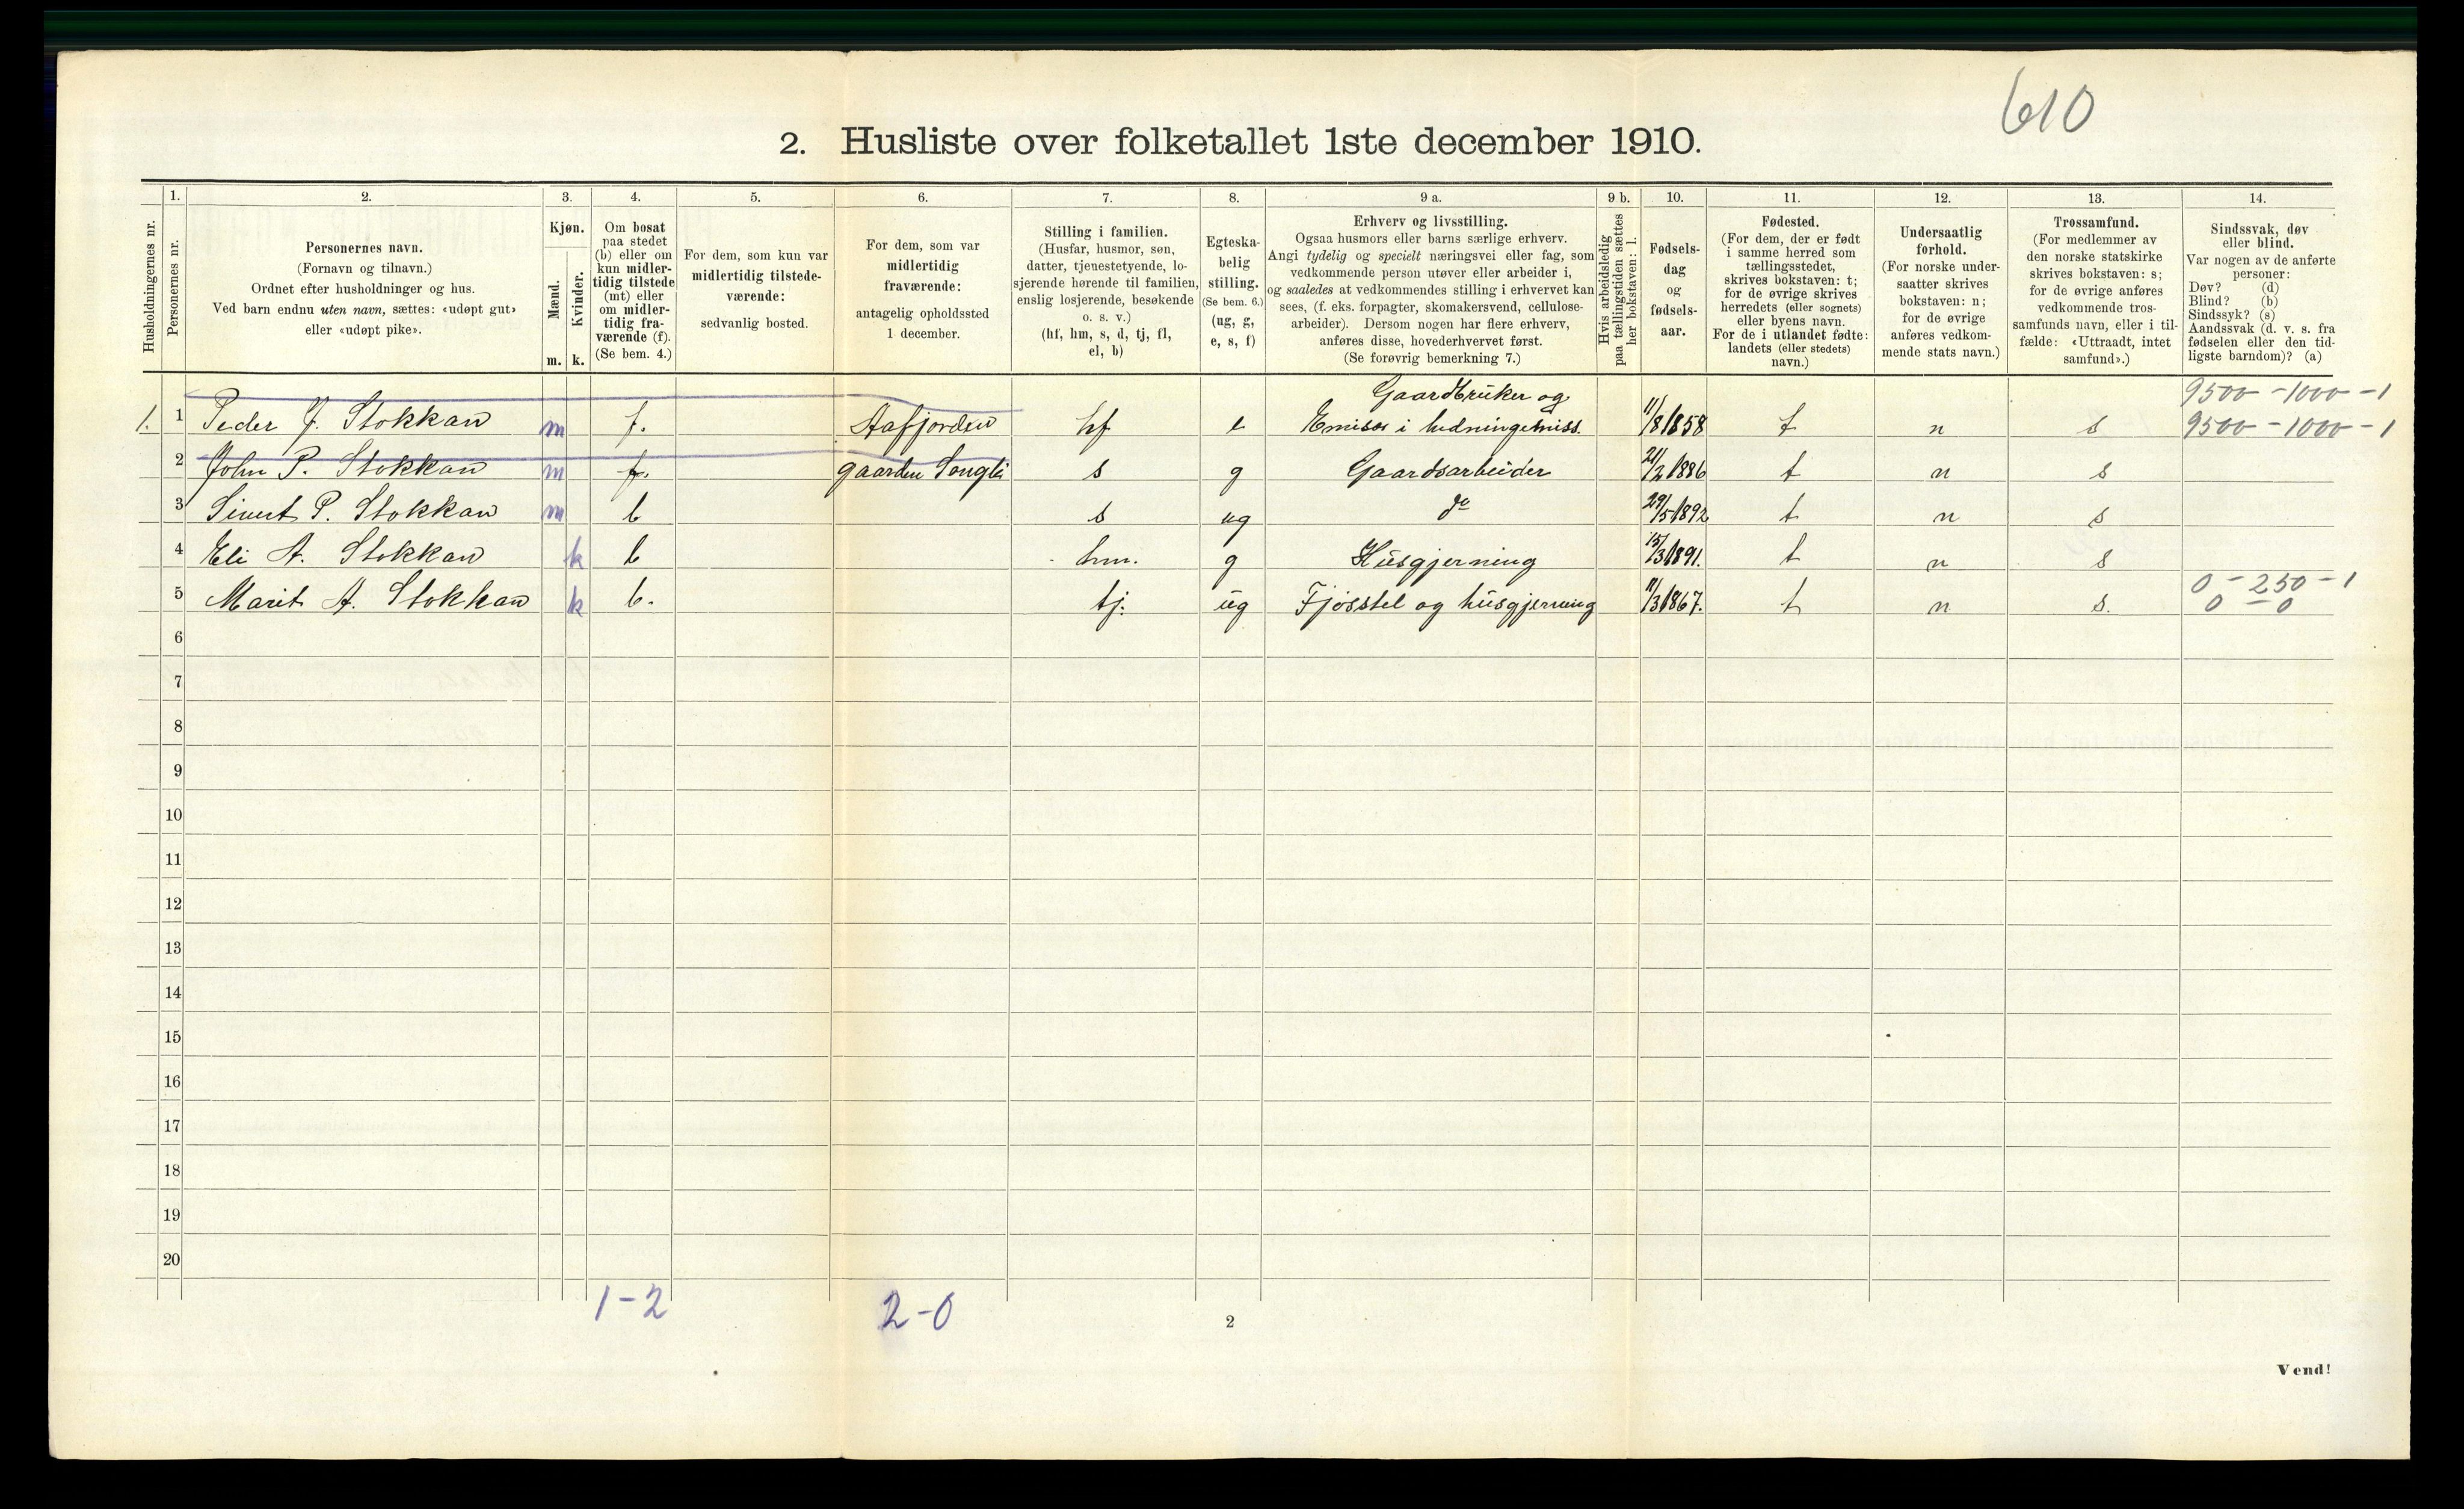 610
2. Husliste over folketallet 1ste december 1910.
1. 2. 3. 4. 5. 6. 7. 8. 9 a. 9 b. 10. 11. 12. 13. 14.
Husholdningernes nr.
Personernes nr.
Personernes navn.
(Fornavn og tilnavn.)
Ordnet efter husholdninger og hus.
Ved barn endnu uten navn, sættes: «udøpt gut»
eller «udøpt pike».
Kjøn.
Mænd.
Kvinder.
m. k.
Om bosat
paa stedet
(b) eller om
kun midler-
tidig tilstede
(mt) eller
om midler-
tidig fra-
værende (f).
(Se bem. 4.)
For dem, som kun var
midlertidig tilstede-
værende:
sedvanlig bosted.
For dem, som var
midlertidig
fraværende:
antagelig opholdssted
1 december.
Stilling i familien.
(Husfar, husmor, søn,
datter, tjenestetyende, lo-
sjerende hørende til familien,
enslig losjerende, besøkende
o. s. v.)
(hf, hm, s, d, tj, fl,
el, b)
Egteska-
belig
stilling.
(Se bem. 6.)
(ug, g,
e, s, f)
Erhverv og livsstilling.
Ogsaa husmors eller barns særlige erhverv.
Angi tydelig og specielt næringsvei eller fag, som
vedkommende person utøver eller arbeider i,
og saaledes at vedkommendes stilling i erhvervet kan
sees, (f. eks. forpagter, skomakersvend, cellulose-
arbeider). Dersom nogen har flere erhverv,
anføres disse, hovederhvervet først.
(Se forøvrig bemerkning 7.)
Hvis arbeidsledig
paa tællingstiden sættes
her bokstaven: l.
Fødsels-
dag
og
fødsels-
aar.
Fødested.
(For dem, der er født
i samme herred som
tællingsstedet,
skrives bokstaven: t;
for de øvrige skrives
herredets (eller sognets)
eller byens navn.
For de i utlandet fødte:
landets (eller stedets)
navn.)
Undersaatlig
forhold.
(For norske under-
saatter skrives
bokstaven: n;
for de øvrige
anføres vedkom-
mende stats navn.)
Trossamfund.
(For medlemmer av
den norske statskirke
skrives bokstaven: s;
for de øvrige anføres
vedkommende tros-
samfunds navn, eller i til-
fælde: «Uttraadt, intet
samfund».)
Sindssvak, døv
eller blind.
Var nogen av de anførte
personer:
Døv? (d)
Blind? (b)
Sindssyk? (s)
Aandssvak (d. v. s. fra
fødselen eller den tid-
ligste barndom)? (a)
Gaardbruker og 9500 - 1000 - 1
1. 1 Peder J. Stokkan m f. Aafjorden hf e Emisær i hedningemiss. 11/8 1858 t n s 9500 - 1000 - 1
2 John P. Stokkan m f. gaarden Songli s g Gaardsarbeider 21/2 1886 t n s
3 Sivert P. Stokkan m b s ug do 29/5 1892 t n s
4 Eli A. Stokkan k b hm. g Husgjerning 15/3 1891. t n s
0 - 250 - 1
5 Marit A. Stokkan k b. tj. ug Fjøsstel og husgjerning 11/3 1867. t n s. 0 - 0
6
7
8
9
10
11
12
13
14
15
16
17
18
19
20
1 - 2 2 - 0
2
Vend!